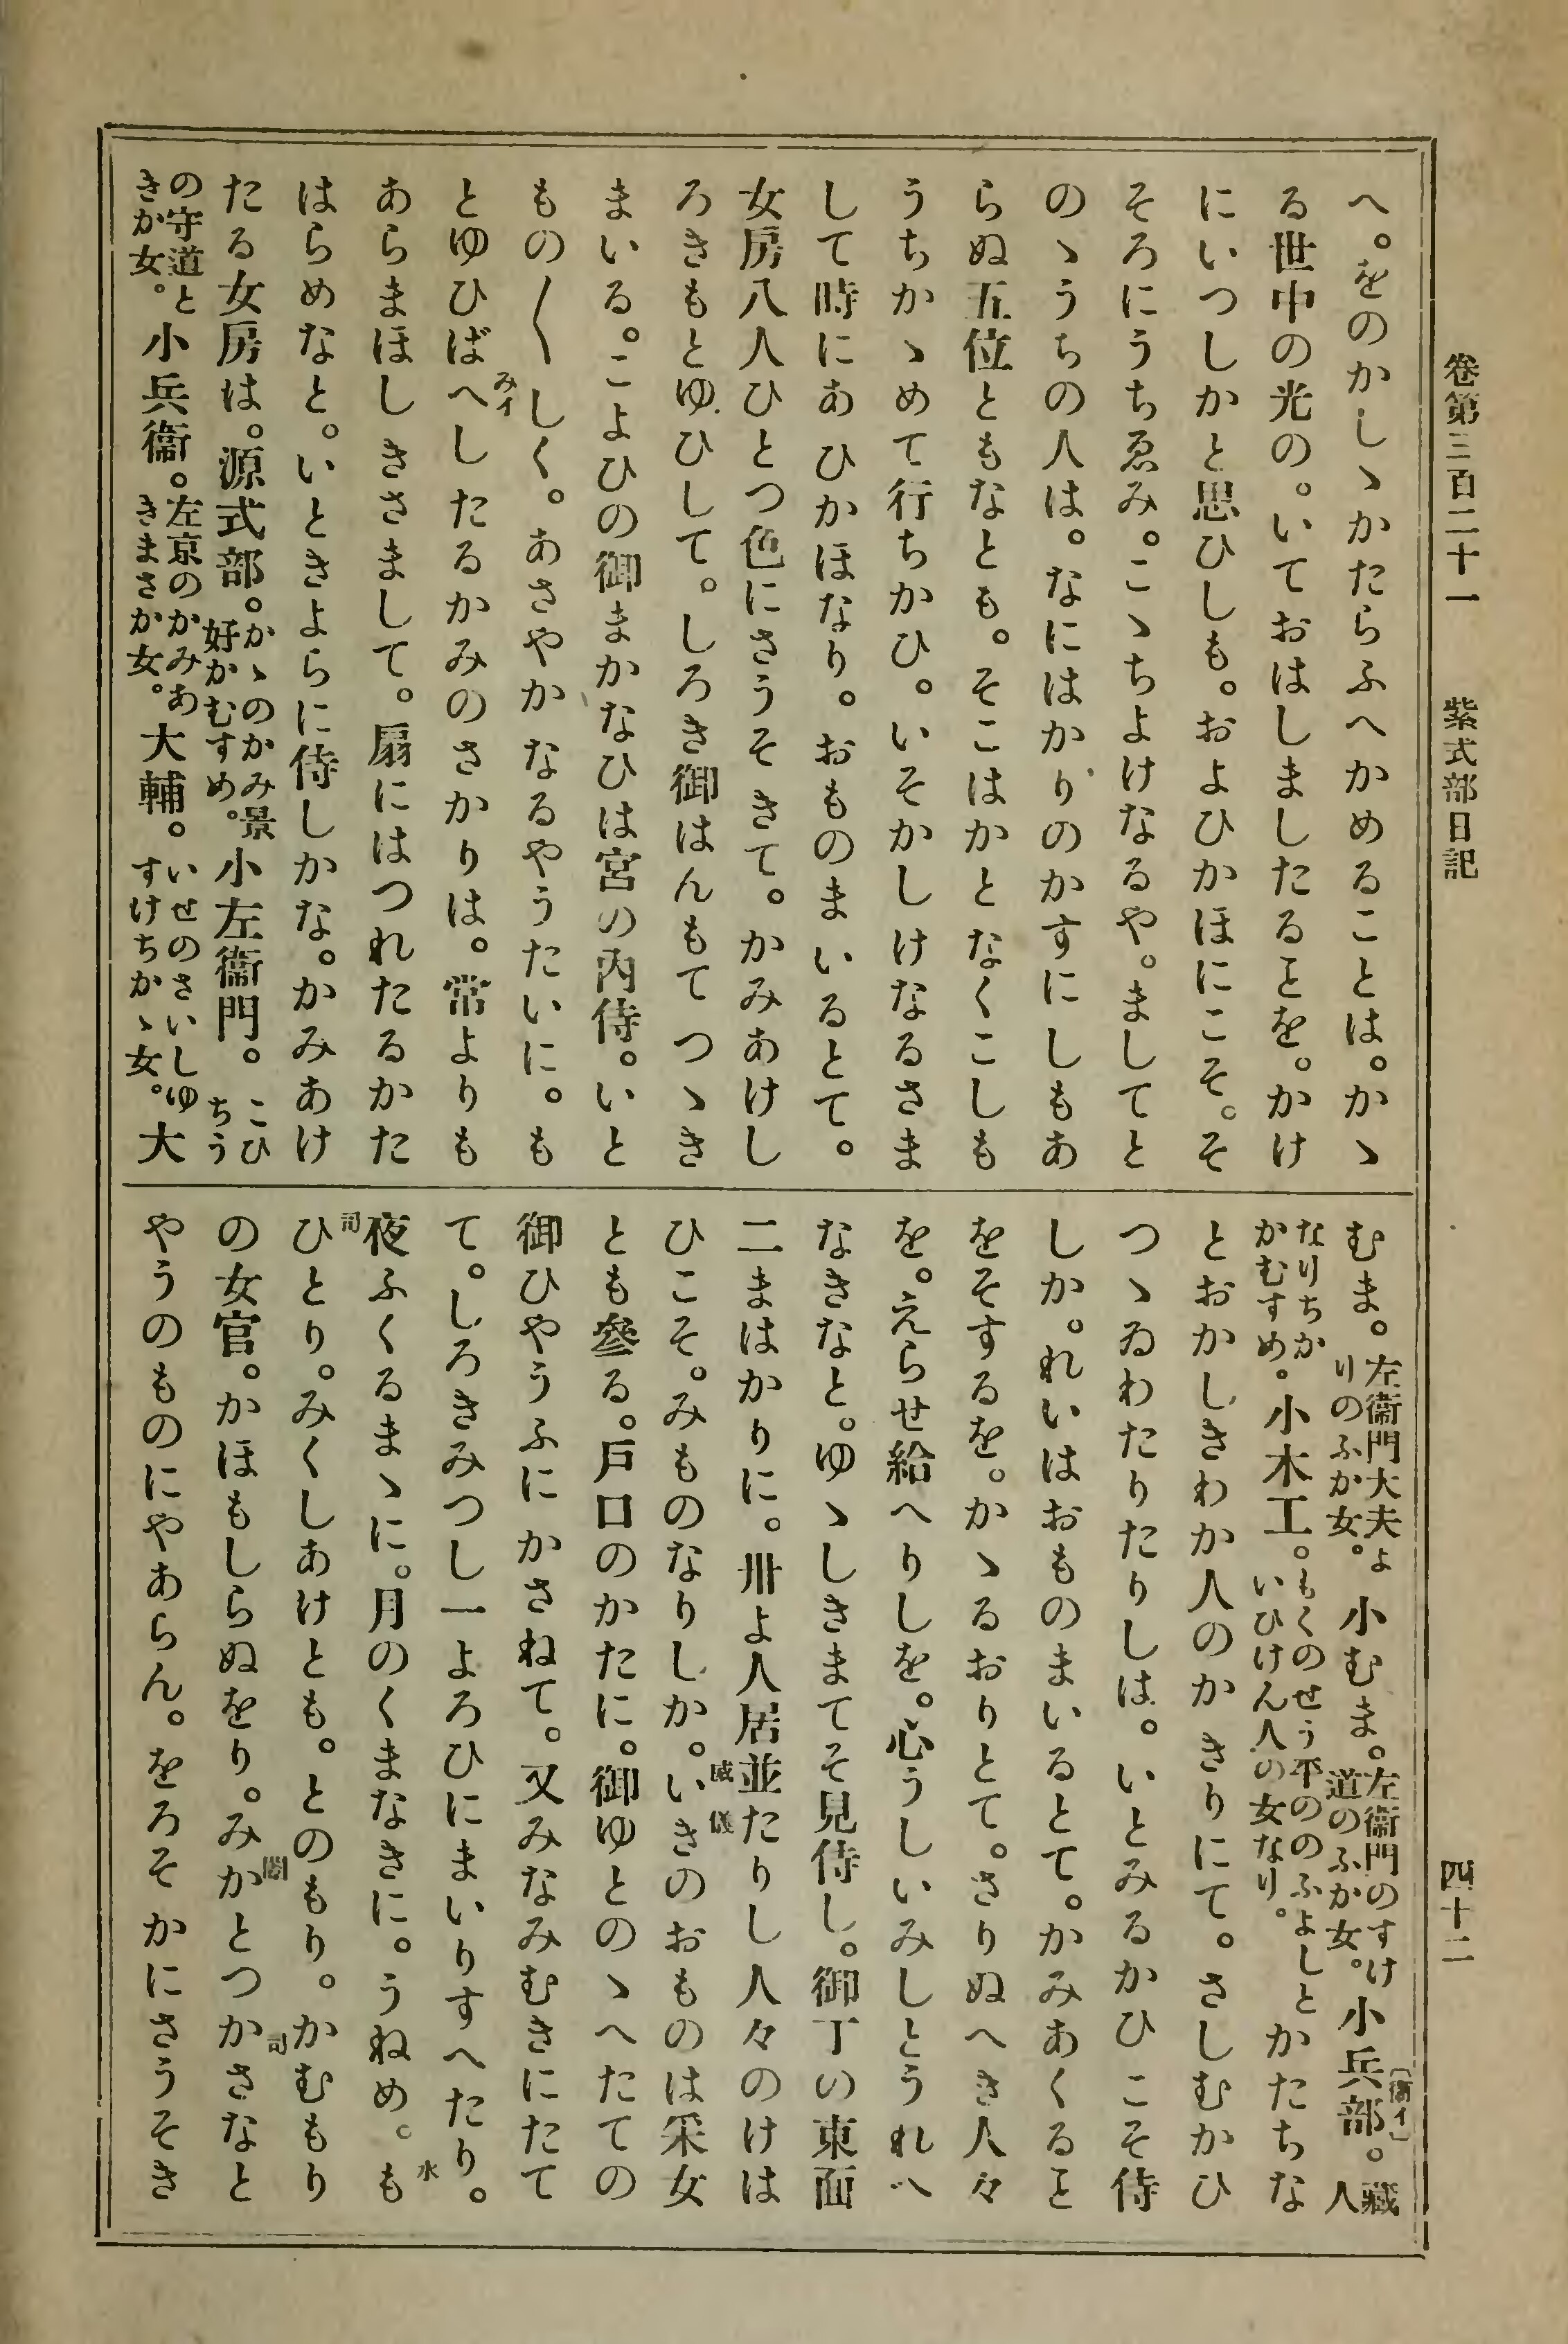 卷第三百二十一　紫式部日記　四十二
へ。をのかしゝかたらふへかめることは。かゝ
る世中の光の。いておはしましたるヿを。かけ
にいつしかと思ひしも。およひかほにこそ。そ
そろにうちゑみ。こゝちよけなるや。ましてと
のゝうちの人は。なにはかりのかすにしもあ
らぬ五位ともなとも。そこはかとなくこしも
うちかゝめて行ちかひ。いそかしけなるさま
して時にあひかほなり。おものまいるとて。
女房八人ひとつ色にさうそきて。かみあけし
ろきもとゆひして。しろき御はんもてつゝき
まいる。こよひの御まかなひは宮の內侍。いと
もの〳〵しく。あさやかなるやうたいに。も
とゆひばへ(みイ)したるかみのさかりは。常よりも
あらまほしきさまして。扇にはつれたるかた
はらめなと。いときよらに侍しかな。かみあけ
たる女房は。源式部。かゝのかみ景好かむすめ。小左衞門。こひちう
の守道ときか女。小兵衞。左京のかみあきまさか女。大輔。いせのさいしゆすけちかゝ女。大
むま。左衞門大夫よりのふか女。小むま。左衞門のすけ道のふか女。小兵部(衞イ)。藏人
なりちかかむすめ。小木工。もくのせう平ののふよしといひけん人の女なり。かたちな
とおかしきわか人のかきりにて。さしむかひ
つゝゐわたりたりしは。いとみるかひこそ侍
しか。れいはおものまいるとて。かみあくるヿ
をそするを。かゝるおりとて。さりぬへき人々
を。えらせ給へりしを。心うしいみしとうれへ
なきなと。ゆゝしきまてそ見侍し。御丁の東面
二まはかりに。卅よ人居並たりし人々のけは
ひこそ。みものなりしか。いき(威儀)のおものは采女
とも參る。戶口のかたに。御ゆとのゝへたての
御ひやうふにかさねて。又みなみむきにたて
て。しろきみつし一よろひにまいりすへたり。
夜ふくるまゝに。月のくまなきに。うねめ。も(水)
ひとり(司)。みくしあけとも。とのもり。かむもり(司)
の女官。かほもしらぬをり。みかとつかさ(闈)なと
やうのものにやあらん。をろそかにさうそき